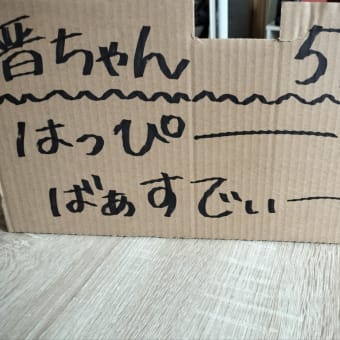 晋ちゃん 5
はっぴー
ばぁすでぃー